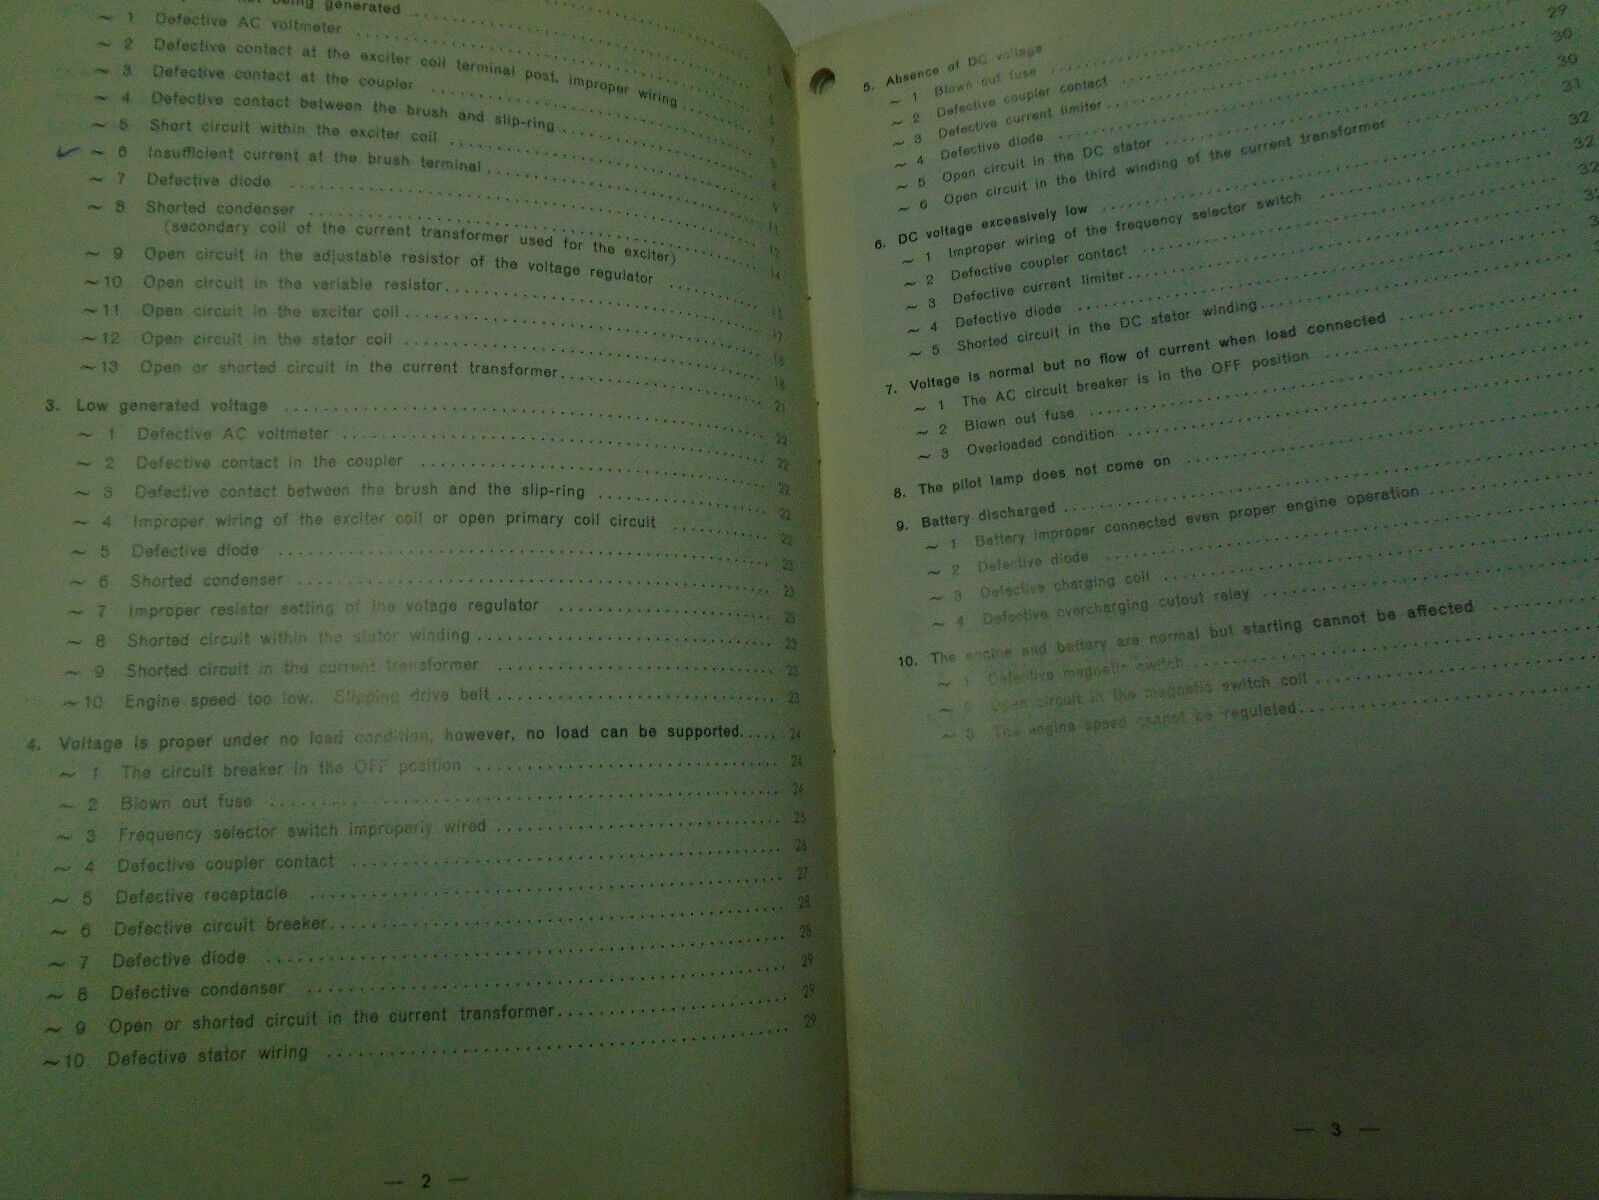 being generated
~ 1 Defective AC voltmeter
~ 2 Defective contact at the exciter coil terminal post, improper wiring
~ 3 Defective contact at the coupler
~ 4 Defective contact between the brush and slip-ring
~ 5 Short circuit within the exciter coil
~ 6 Insufficient current at the brush terminal
~ 7 Defective diode
~ 8 Shorted condenser
(secondary coil of the current transformer used for the exciter)
~ 9 Open circuit in the adjustable resistor of the voltage regulator
~10 Open circuit in the variable resistor
~11 Open circuit in the exciter coil
~12 Open circuit in the stator coil
~13 Open or shorted circuit in the current transformer
3. Low generated voltage
~ 1 Defective AC voltmeter 22
~ 2 Defective contact in the coupler 22
~ 3 Defective contact between the brush and the slip-ring 22
~ 4 Improper wiring of the exciter coil or open primary coil circuit
~ 5 Defective diode
~ 6 Shorted condenser
~ 7 Improper resistor setting of the votage regulator 23
~ 8 Shorted circuit within the stator winding 23
~ 9 Shorted circuit in the current transformer 23
~10 Engine speed too low. Slipping drive belt 23
4. Voltage is proper under no load condition, however, no load can be supported. 24
~ 1 The circuit breaker in the OFF position 24
~ 2 Blown out fuse 24
~ 3 Frequency selector switch improperly wired 25
~ 4 Defective coupler contact 26
~ 5 Defective receptacle 27
~ 6 Defective circuit breaker 28
~ 7 Defective diode 28
~ 8 Defective condenser 29
~ 9 Open or shorted circuit in the current transformer 29
~10 Defective stator wiring 29
— 2 —
5. Absence of DC voltage
~ 1 Blown out fuse
~ 2 Defective coupler contact
~ 3 Defective current limiter
~ 4 Defective diode
~ 5 Open circuit in the DC stator
~ 6 Open circuit in the third winding of the current transformer
6. DC voltage excessively low
~ 1 Improper wiring of the frequency selector switch
~ 2 Defective coupler contact
~ 3 Defective current limiter
~ 4 Defective diode
~ 5 Shorted circuit in the DC stator winding
7. Voltage is normal but no flow of current when load connected
~ 1 The AC circuit breaker is in the OFF position
~ 2 Blown out fuse
~ 3 Overloaded condition
8. The pilot lamp does not come on
9. Battery discharged
~ 1 Battery improper connected even proper engine operation
~ 2 Defective diode
~ 3 Defective charging coil
~ 4 Defective overcharging cutout relay
10. The engine and battery are normal but starting cannot be affected
~ 1 Defective magnetic switch
~ 2 Open circuit in the magnetic switch coil
~ 3 The engine speed cannot be regulated
— 3 —